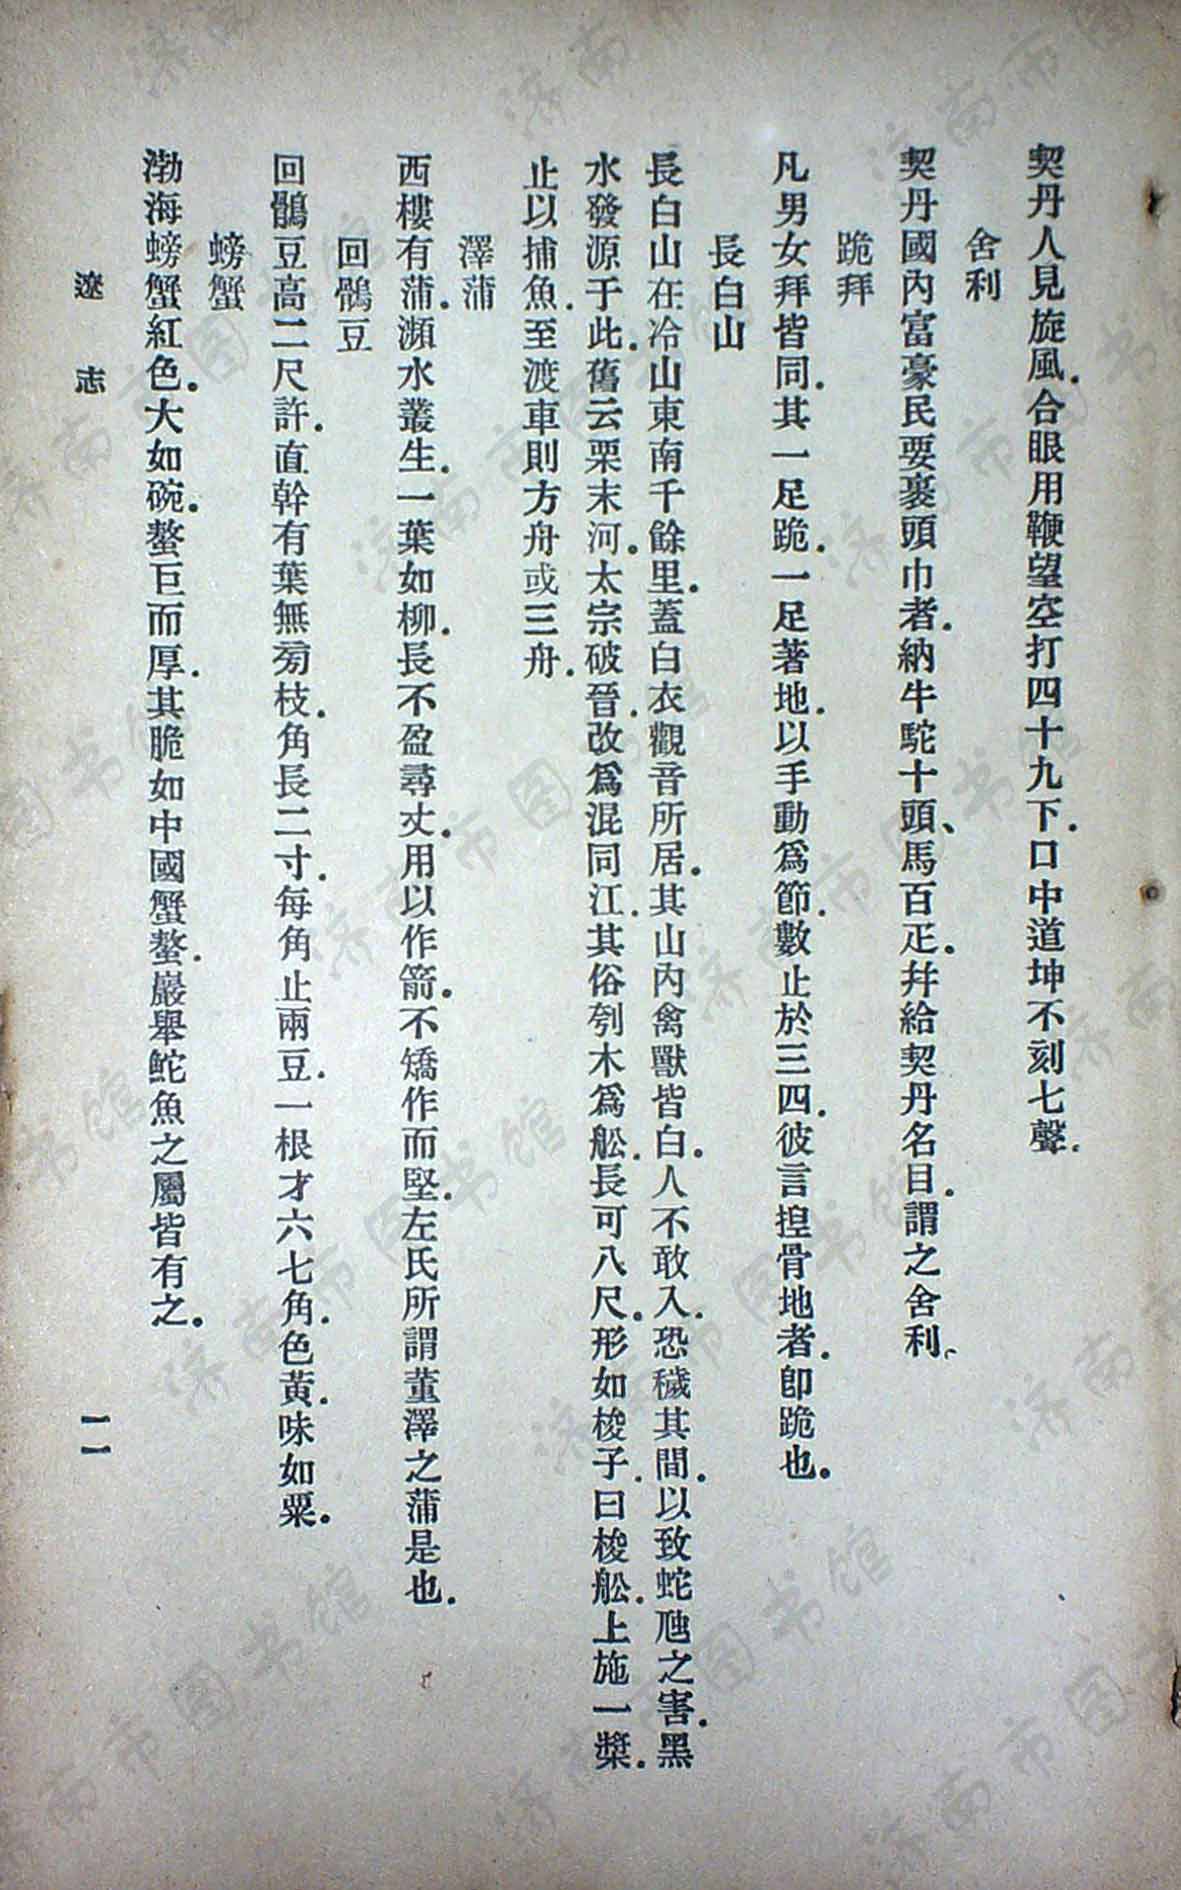 契丹人見旋風.合眼用鞭望空打四十九下.口中道坤不刻七聲.
舍利
契丹國內富豪民要裹頭巾者.納牛駝十頭、馬百疋.幷給契丹名目.謂之舍利.
跪拜
凡男女拜皆同.其一足跪.一足著地.以手動爲節.數止於三四.彼言揑骨地者.卽跪也.
長白山
長白山在冷山東南千餘里.蓋白衣觀音所居.其山內禽獸皆白.人不敢入.恐穢其間.以致蛇虺之害.黑
水發源于此.舊云栗末河.太宗破晉.改爲混同江.其俗刳木爲舩.長可八尺.形如梭子.曰梭舩.上施一槳.
止以捕魚.至渡車則方舟或三舟.
澤蒲
西樓有蒲.瀕水叢生.一葉如柳.長不盈尋丈.用以作箭.不矯作而堅.左氏所謂董澤之蒲是也.
回鶻豆
回鶻豆高二尺許.直幹有葉無旁枝.角長二寸.每角止兩豆.一根才六七角.色黃.味如粟.
螃蟹
渤海螃蟹紅色.大如碗.螯巨而厚.其脆如中國蟹螯.巖舉鮀魚之屬皆有之.
遼志
一一
济南市图书馆